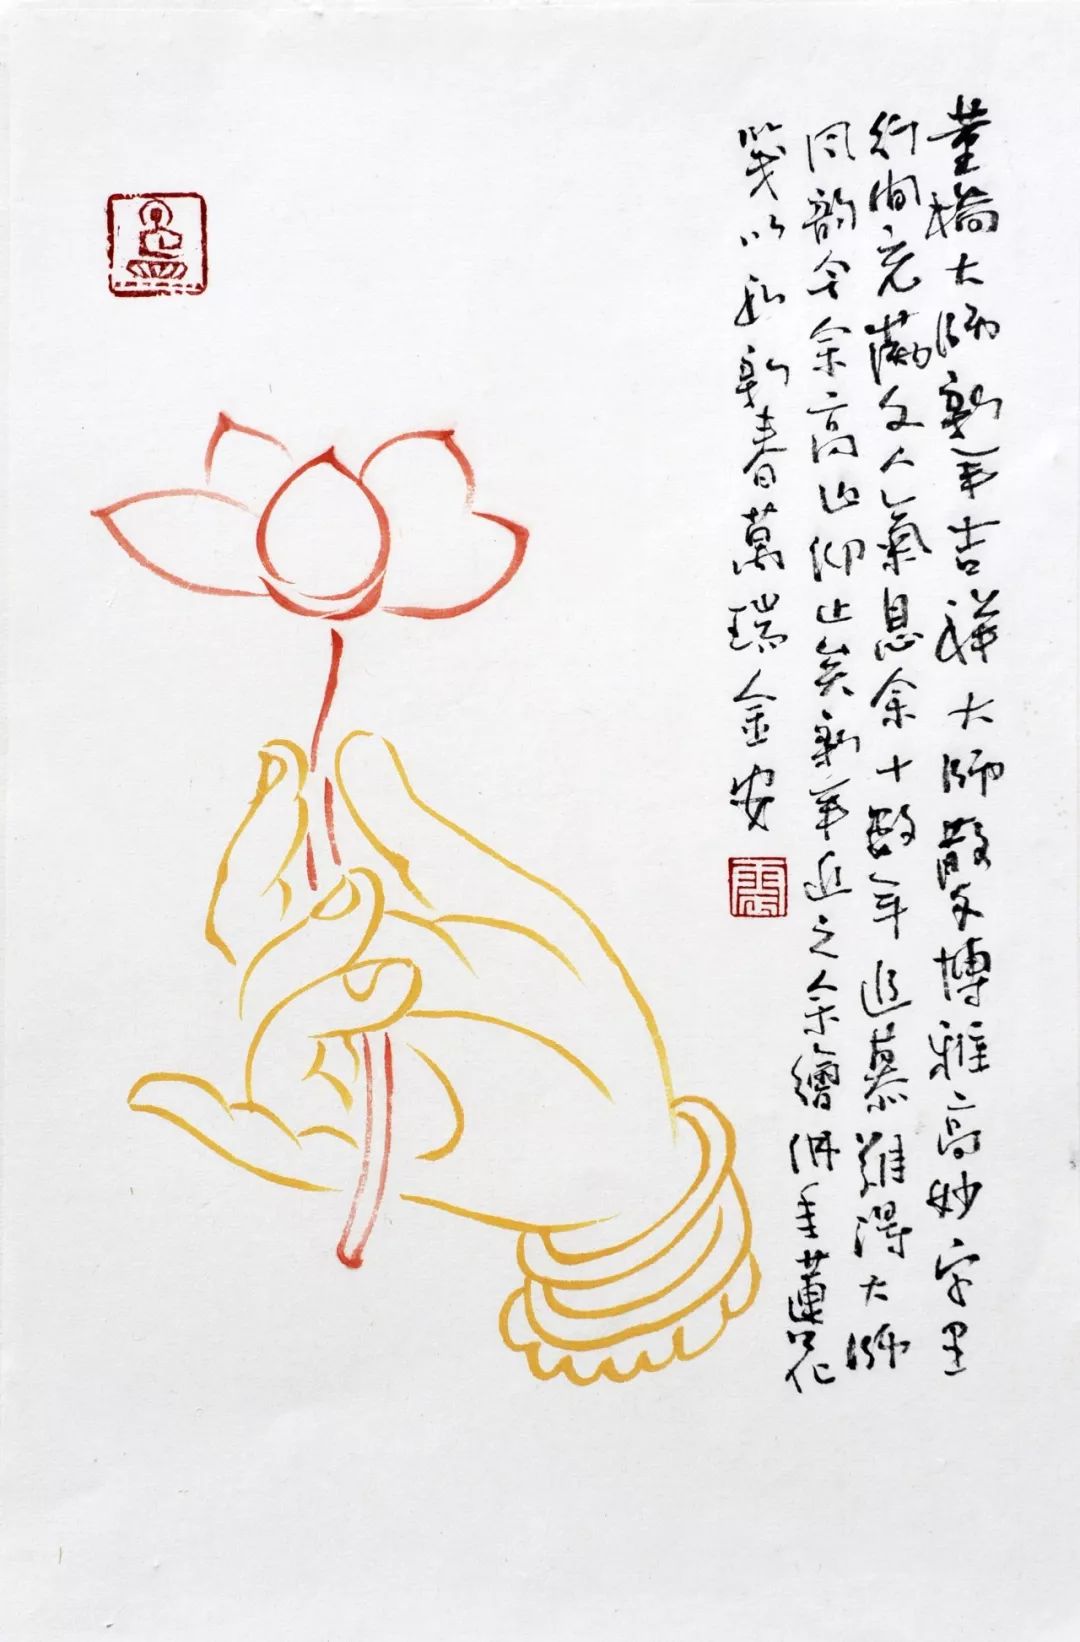 董橋大师新年吉祥大师散文博雅高妙字里
行間充满文人氣息余十数年追慕難得大师
同韵令余高山仰止矣新年近之余繪佛手蓮花
笺以和新春萬瑞金安